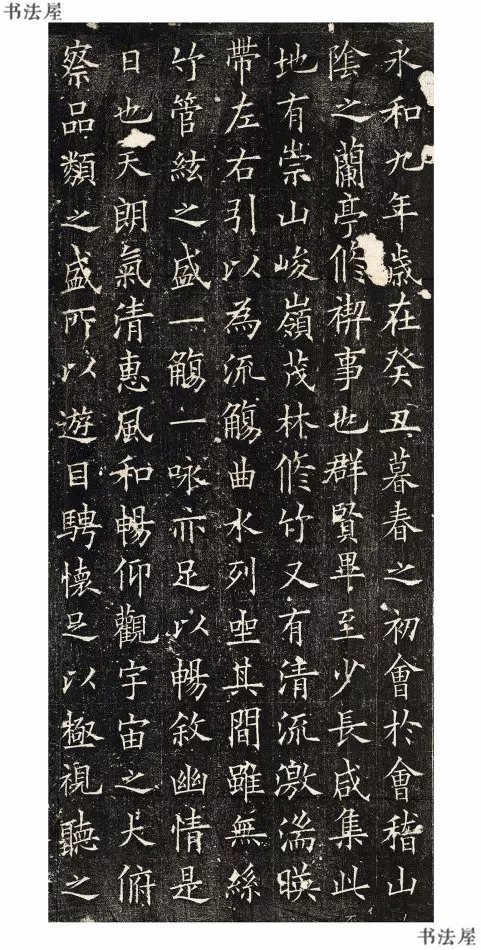 书法屋
永和九年歲在癸丑暮春之初會於會稽山
陰之蘭亭修禊事也群賢畢至少長咸集此
地有崇山峻嶺茂林修竹又有清流激湍暎
帶左右引以為流觴曲水列坐其間雖無絲
竹管絃之盛一觴一咏亦足以暢敘幽情是
日也天朗氣清惠風和暢仰觀宇宙之大俯
察品類之盛所以遊目騁懷足以極視聽之
书法屋